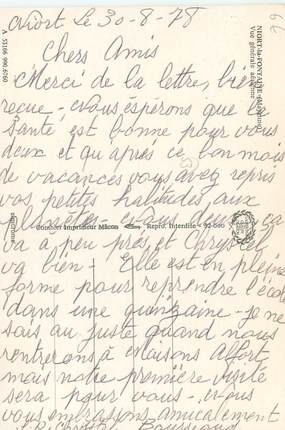 Niort Le 30-8-78
Chers Amis
Merci de la lettre, bien
recue - nous espérons que la
santé est bonne pour vous
deux et qu'après ce bon mois
de vacances vous avez repris
vos petites habitudes aux
- nous deux ça
va a peu près et Chrystel
va bien - Elle est en pleine
forme pour reprendre l'école
dans une quinzaine - je ne
sais au juste quand nous
rentrerons à Maisons Alfort
mais notre première visite
sera pour vous - nous
vous embrassons amicalement
Combier Imprimeur Mâcon
Repro. Interdite
NIORT-la-FONTAINE
Vue générale aérienne